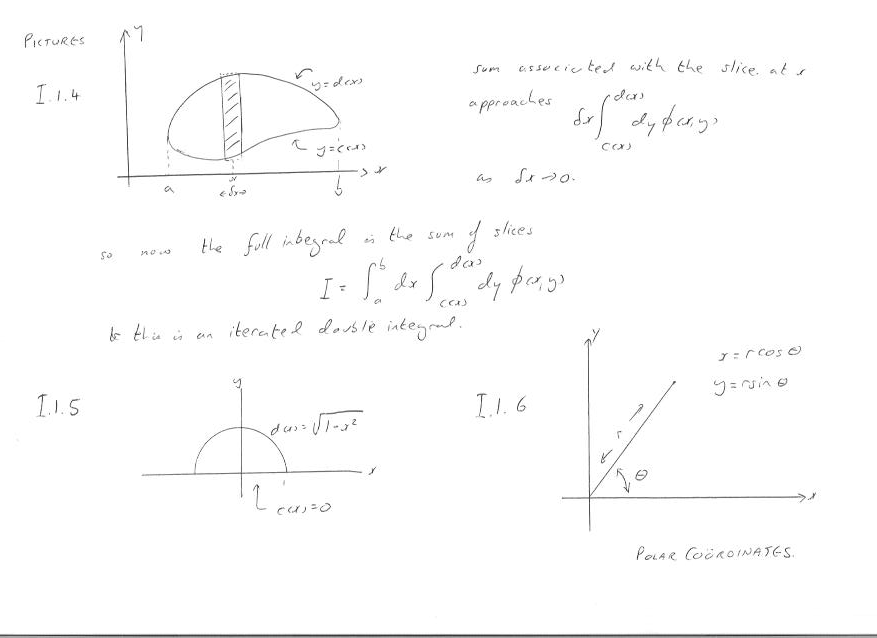 PICTURES
I.1.4
y
y=d(x)
y=c(x)
x
a
x
←δx→
b
sum associated with the slice at x
approaches δx∫_{c(x)}^{d(x)} dy ϕ(x,y)
as δx→0.
so now the full integral is the sum of slices
I = ∫_a^b dx ∫_{c(x)}^{d(x)} dy ϕ(x,y)
& this is an iterated double integral.
I.1.5
y
d(x)=√(1-x²)
x
1
c(x)=0
I.1.6
y
x=rcosθ
y=rsinθ
r
θ
x
POLAR COÖRDINATES.